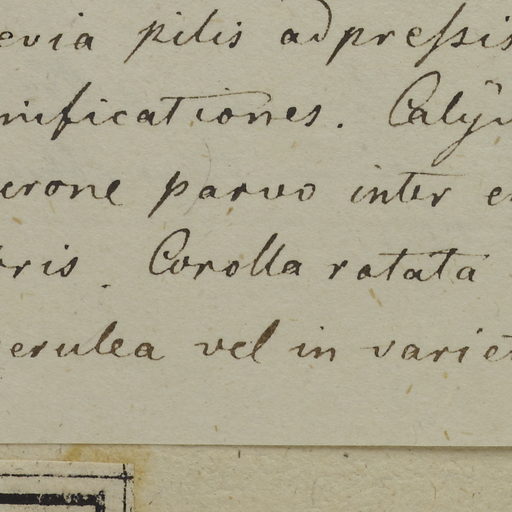 evia pilis adpreſsis
mificationes. Caly
erone parvo inter e
ris. Corolla rotata
erulea vel in variet